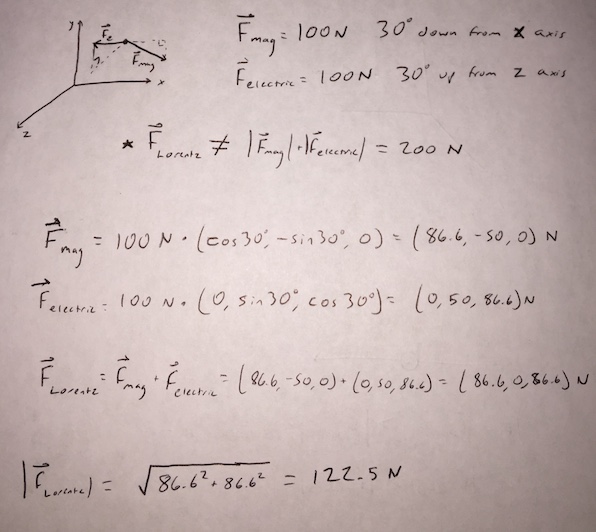 y
F⃗e
F⃗mag
x
z
F⃗mag = 100N 30° down from x axis
F⃗electric = 100N 30° up from z axis
* F⃗Lorentz ≠ |F⃗mag| + |F⃗electric| = 200 N
F⃗mag = 100 N · (cos30°, -sin30°, 0) = (86.6, -50, 0) N
F⃗electric = 100 N · (0, sin30°, cos30°) = (0, 50, 86.6) N
F⃗Lorentz = F⃗mag + F⃗electric = (86.6, -50, 0) + (0, 50, 86.6) = (86.6, 0, 86.6) N
|F⃗Lorentz| = √86.6² + 86.6² = 122.5 N